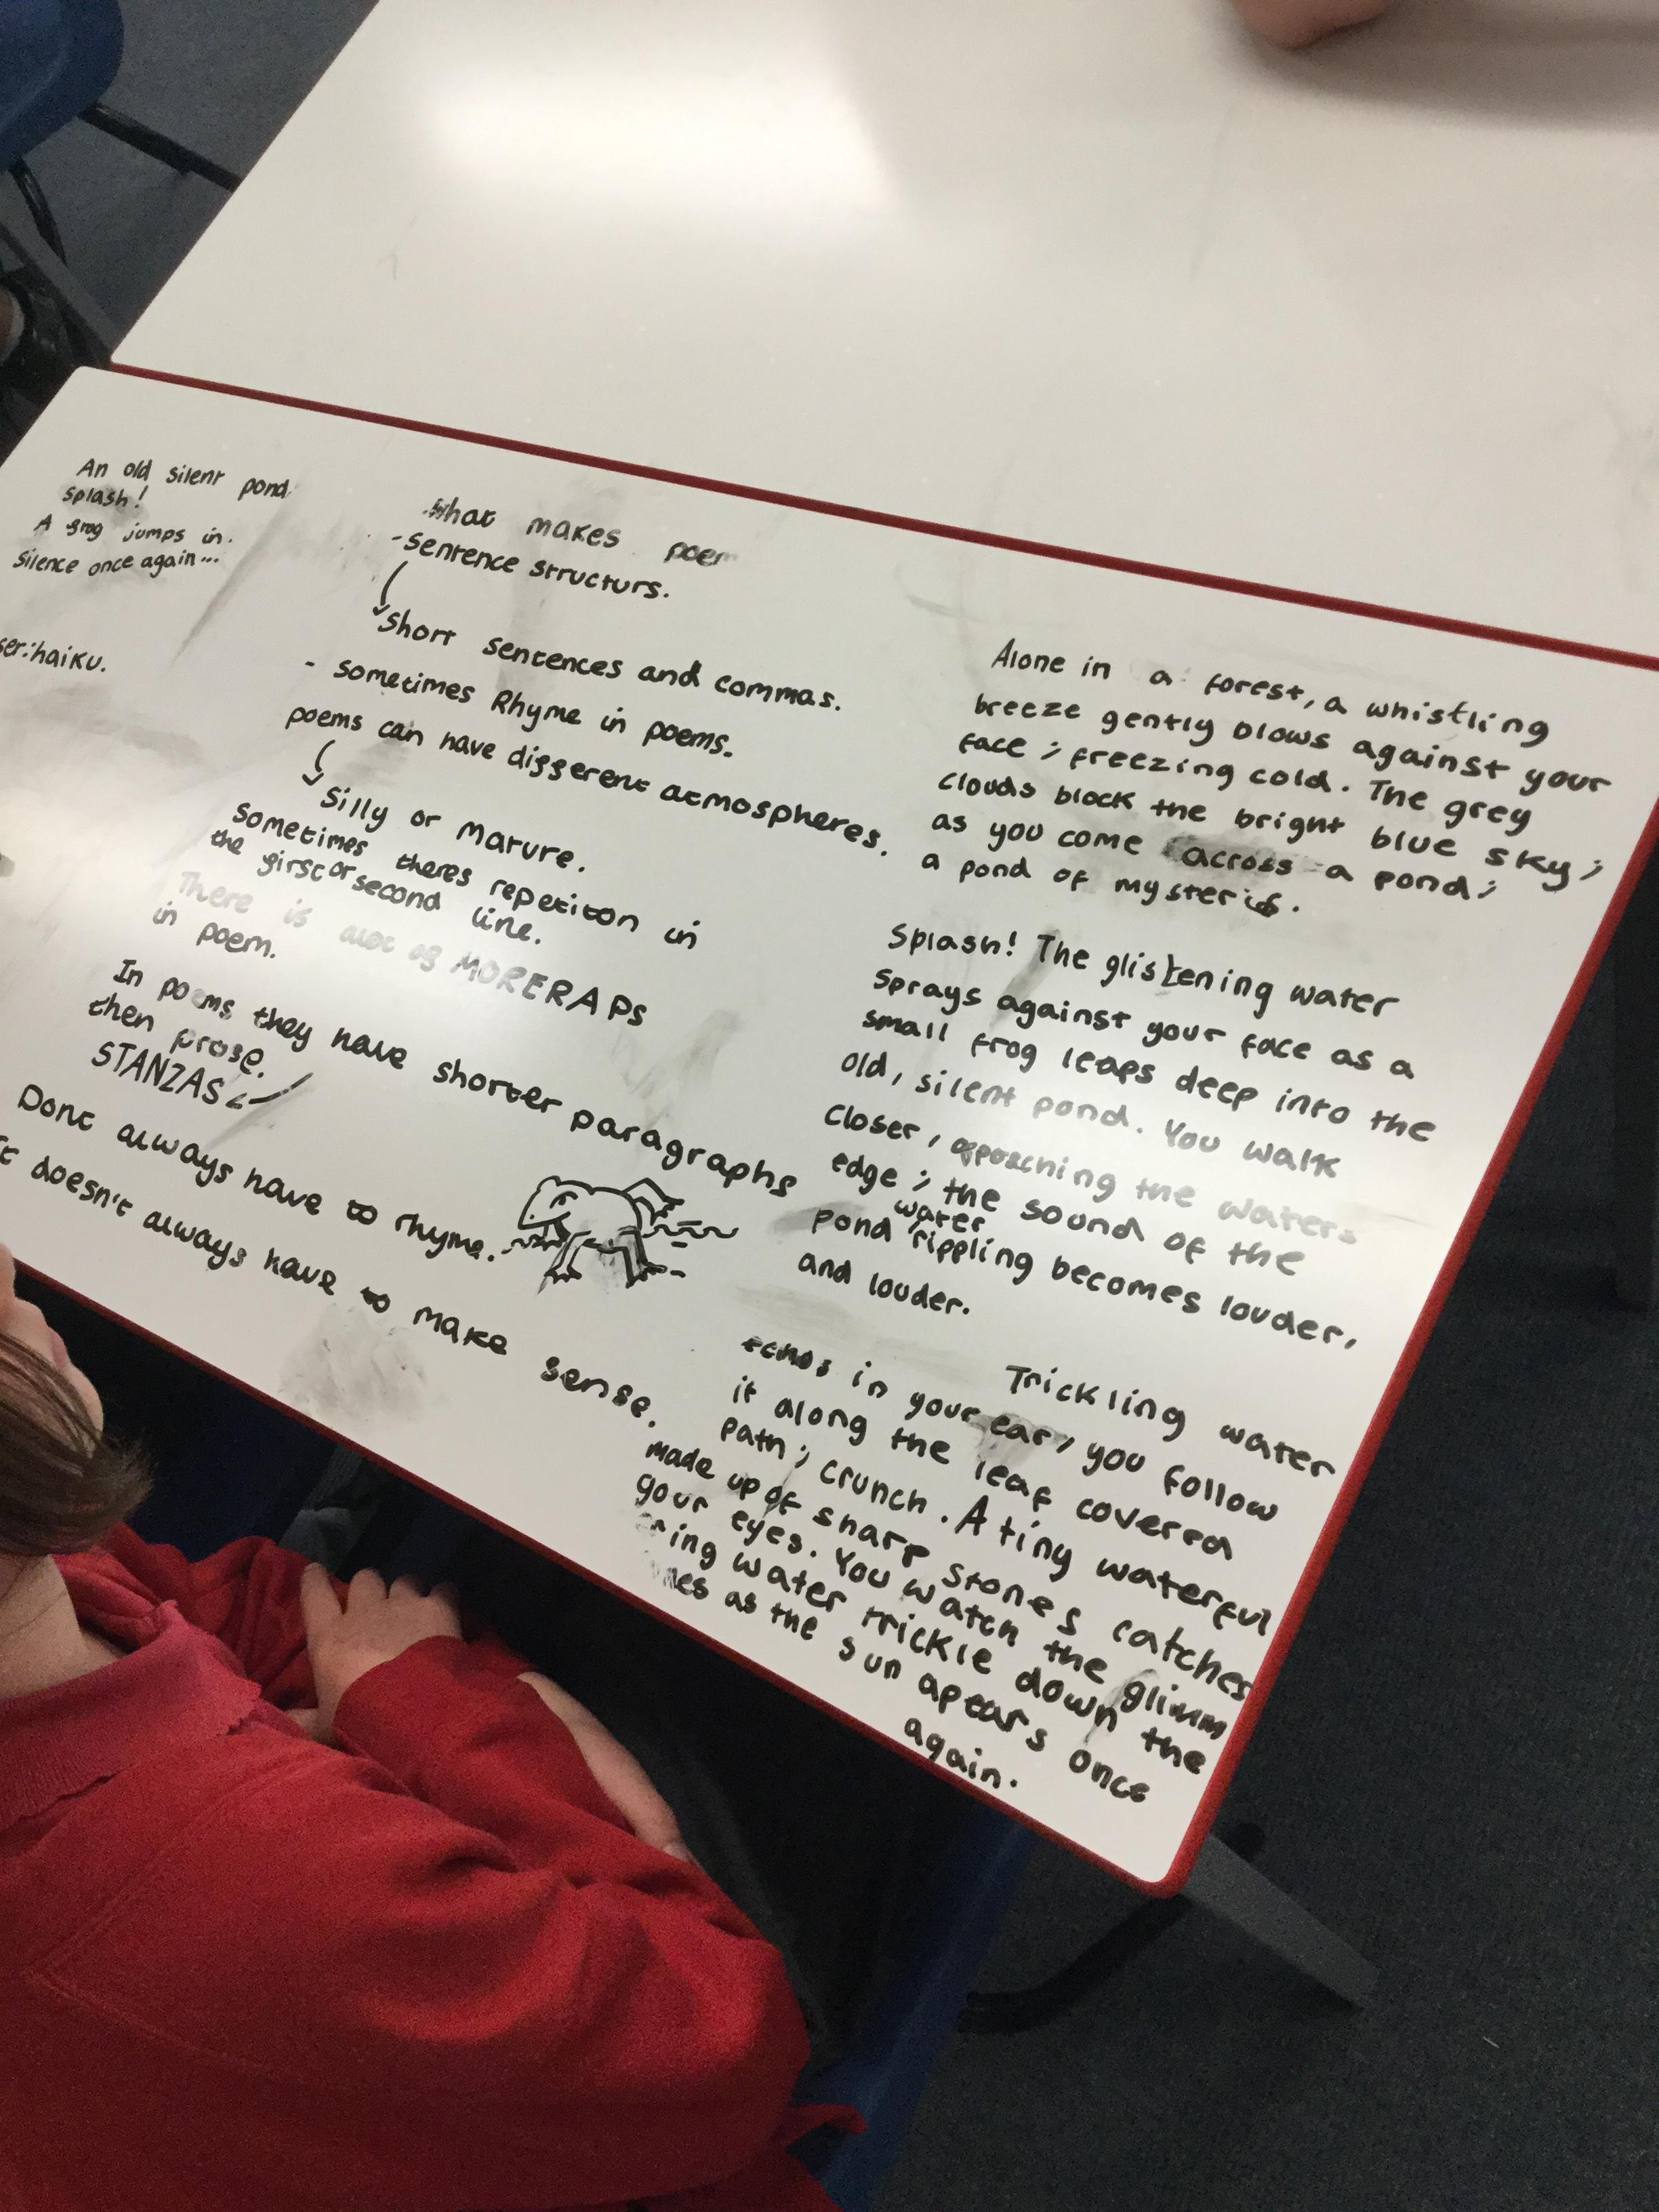 An old silent pond
splash!
A frog jumps in.
silence once again...
ser: haiku.
What makes poem
- sentence structurs.
short sentences and commas.
- sometimes Rhyme in poems.
poems can have different atmospheres.
silly or mature.
sometimes theres repetiton in
the first or second line.
There is alot of MORERAPs
in poem.
In poems they have shorter paragraphs
then prose.
STANZAS
Dont always have to rhyme.
doesn't always have to make sense.
Alone in a forest, a whistling
breeze gently blows against your
face; freezing cold. The grey
clouds block the bright blue sky;
as you come across a pond;
a pond of mysteries.
Splash! The glistening water
sprays against your face as a
small frog leaps deep into the
old, silent pond. You walk
closer, approaching the waters
edge; the sound of the
water
pond rippling becomes louder,
and louder.
Trickling water
echos in your ear, you follow
it along the leaf covered
path; crunch. A tiny waterful
made up of sharp stones catches
your eyes. You watch the glimm
ring water trickle down the
as the sun apears once
again.